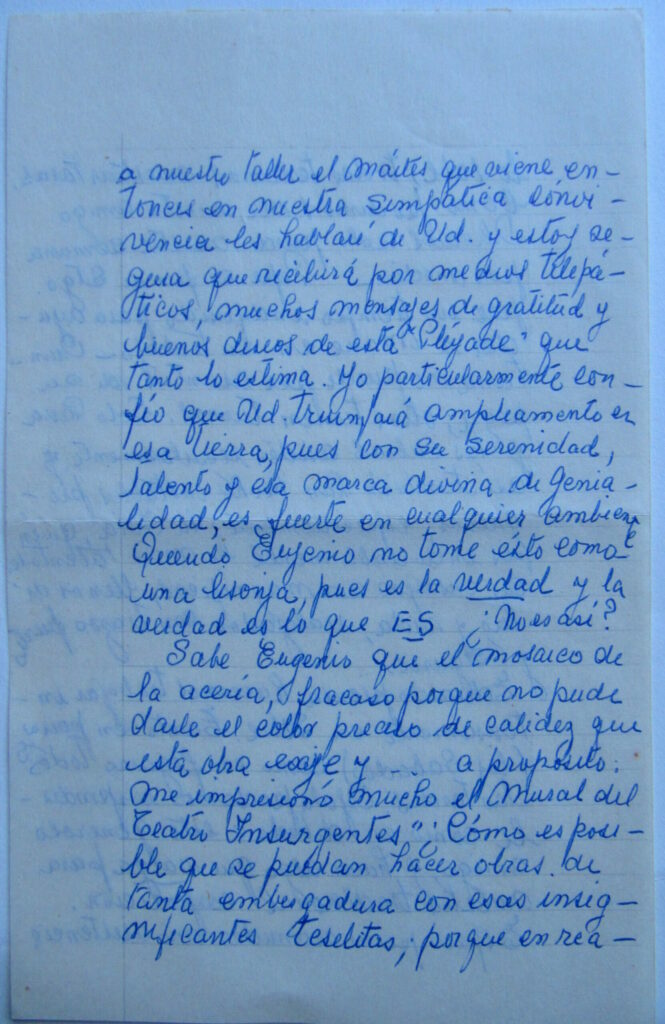 a nuestro taller el Mártes que viene, en-
tonces en nuestra simpática convi-
vencia les hablaré de Ud. y estoy se-
gura que recibirá por medios telepá-
ticos, muchos mensajes de gratitud y
buenos deseos de esta "Pléyade" que
tanto lo estima. Yo particularmente con-
fío que Ud triunfará ampliamente en
esa tierra, pues con su serenidad,
talento y esa marca divina de genia-
lidad, es fuerte en cualquier ambiente
Querido Eugenio no tome ésto como
una lisonja, pues es la verdad y la
verdad es lo que ES ¿No es así?
Sabe Eugenio que el mosaico de
la acería, fracaso porque no pude
darle el color preciso de calidez que
esta obra exije y... a proposito:
Me impresionó mucho el Mural del
Teatro Insurgentes "¡Cómo es posi-
ble que se puedan hacer obras de
tanta embergadura con esas insig-
nificantes teselitas, porque en rea-